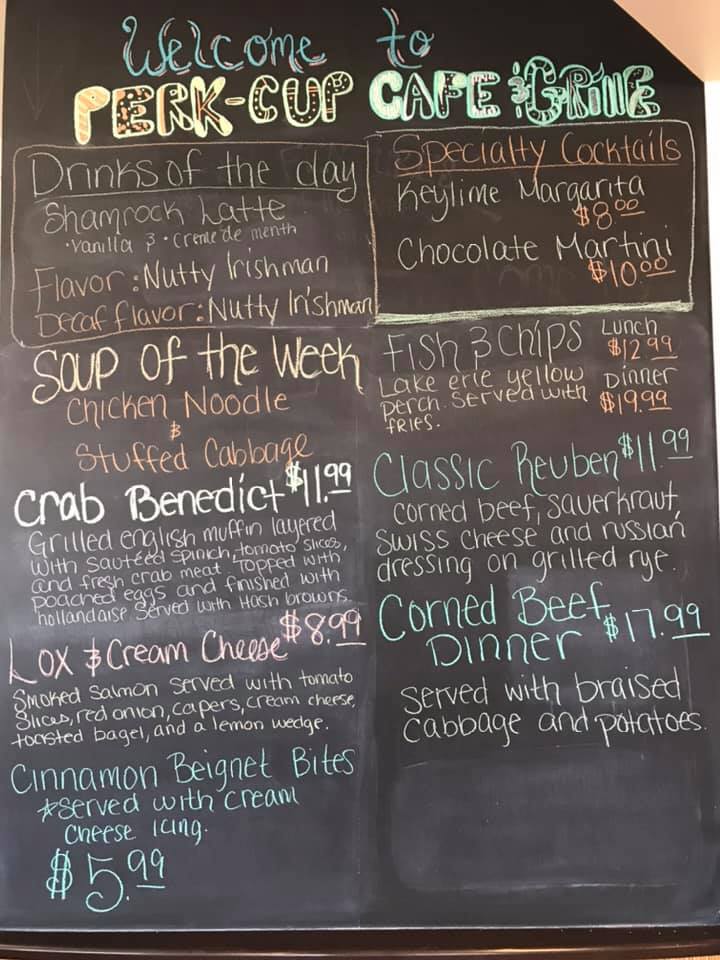 Welcome to
PERK-CUP CAFE & GRILLE
Drinks of the day
Shamrock Latte
•Vanilla & •Creme de menth
Flavor: Nutty Irishman
Decaf flavor: Nutty Irishman
Specialty Cocktails
Keylime Margarita
$8.00
Chocolate Martini
$10.00
Soup of the Week
Chicken Noodle
&
Stuffed Cabbage
Crab Benedict $11.99
Grilled english muffin layered
with sautéed spinich, tomato slices,
and fresh crab meat. Topped with
poached eggs and finished with
hollandaise served with hash browns.
Lox & Cream Cheese $8.99
Smoked Salmon served with tomato
slices, red onion, capers, cream cheese,
toasted bagel, and a lemon wedge.
Cinnamon Beignet Bites
*Served with cream
cheese icing.
$5.99
Fish & Chips Lunch
$12.99
Lake erie yellow Dinner
perch. Served with $19.99
fries.
Classic Reuben $11.99
Corned beef, sauerkraut,
swiss cheese and russian
dressing on grilled rye.
Corned Beef
Dinner $17.99
Served with braised
cabbage and potatoes.